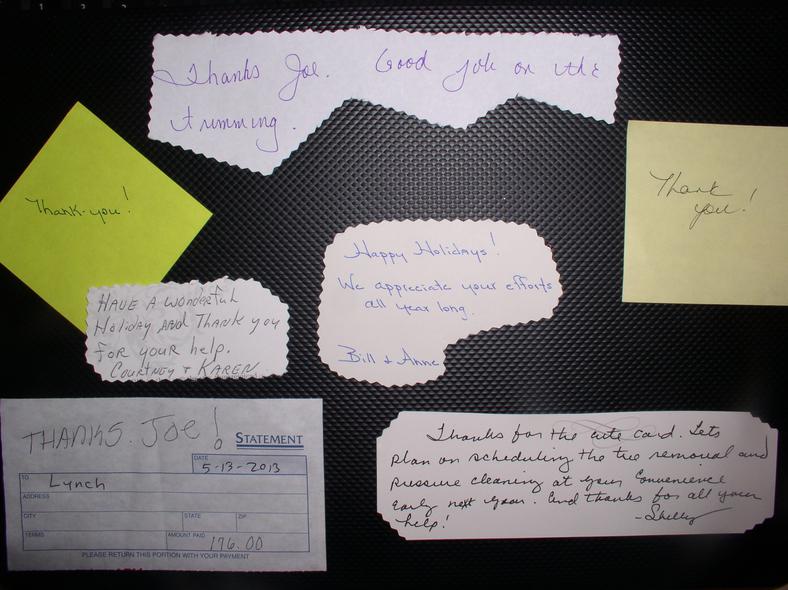 Thanks Joe. Good job on the
trimming.
Thank-you!
Thank
you!
Happy Holidays!
We appreciate your efforts
all year long.
Bill & Anne
HAVE A WONDERFUL
HOLIDAY AND THANK YOU
FOR YOUR HELP.
COURTNEY + KAREN
THANKS. JOE!
STATEMENT
DATE
5-13-2013
TO
Lynch
ADDRESS
CITY STATE ZIP
TERMS AMOUNT PAID
176.00
PLEASE RETURN THIS PORTION WITH YOUR PAYMENT
Thanks for the cute card. Lets
plan on scheduling the tree removal and
pressure cleaning at your convenience
early next year. And thanks for all your
help! -Shelley